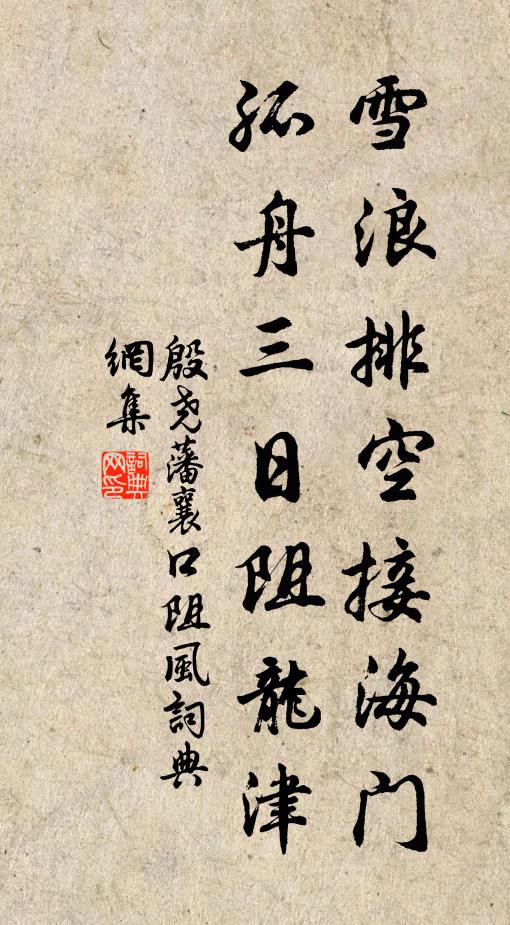 雪浪排空接海门
孤舟三日阻龍津
殷尧藩襄口阻風詞典
網集
詞典網印